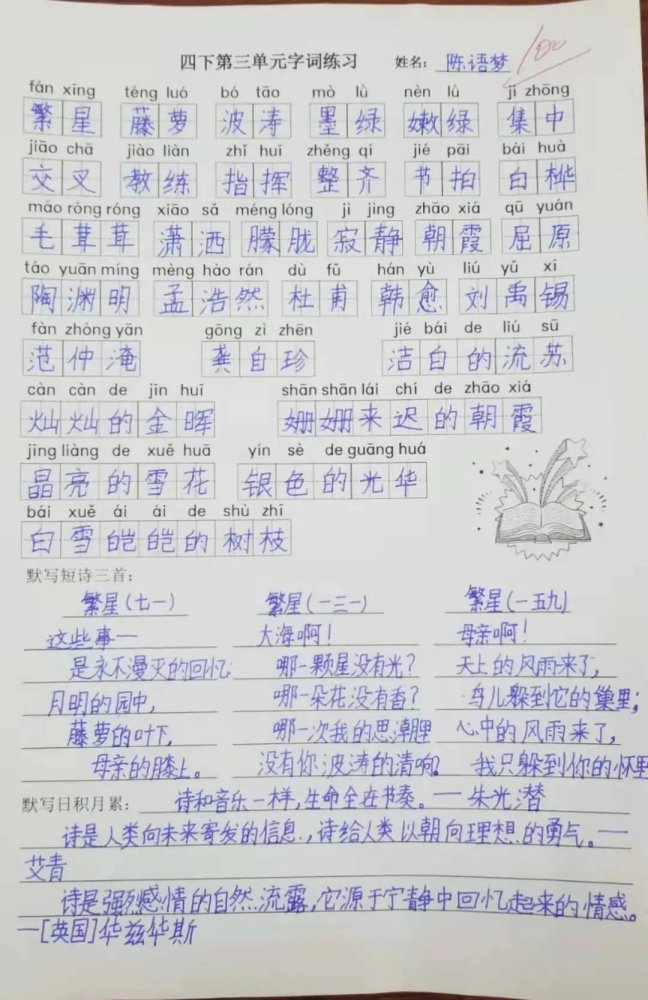 四下第三单元字词练习 姓名：陈语梦 100
fán xīng téng luó bó tāo mò lǜ nèn lǜ jí zhōng
繁星 藤萝 波涛 墨绿 嫩绿 集中
jiāo chā jiào liàn zhǐ huī zhěng qí jié pāi bái huà
交叉 教练 指挥 整齐 节拍 白桦
máo róng róng xiāo sǎ méng lóng jì jìng zhāo xiá qū yuán
毛茸茸 潇洒 朦胧 寂静 朝霞 屈原
táo yuān míng mèng hào rán dù fǔ hán yù liú yǔ xī
陶渊明 孟浩然 杜甫 韩愈 刘禹锡
fàn zhòng yān gōng zì zhēn jié bái de liú sū
范仲淹 龚自珍 洁白的流苏
càn càn de jīn huī shān shān lái chí de zhāo xiá
灿灿的金晖 姗姗来迟的朝霞
jīng liàng de xuě huā yín sè de guāng huá
晶亮的雪花 银色的光华
bái xuě ái ái de shù zhī
白雪皑皑的树枝
默写短诗三首：
繁星（七一） 繁星（一三一） 繁星（一五九）
这些事— 大海啊！ 母亲啊！
是永不漫灭的回忆 哪一颗星没有光？ 天上的风雨来了，
月明的园中， 哪一朵花没有香？ 鸟儿躲到它的巢里；
藤萝的叶下， 哪一次我的思潮里 心中的风雨来了，
母亲的膝上。 没有你波涛的清响？ 我只躲到你的怀里
默写日积月累： 诗和音乐一样，生命全在节奏。—朱光潜
诗是人类向未来寄发的信息，诗给人类以朝向理想的勇气。—
艾青
诗是强烈感情的自然流露，它源于宁静中回忆起来的情感。
—[英国]华兹华斯